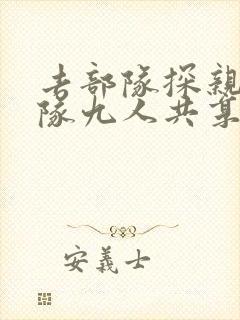 去部隊探親
隊九人共某
安義士